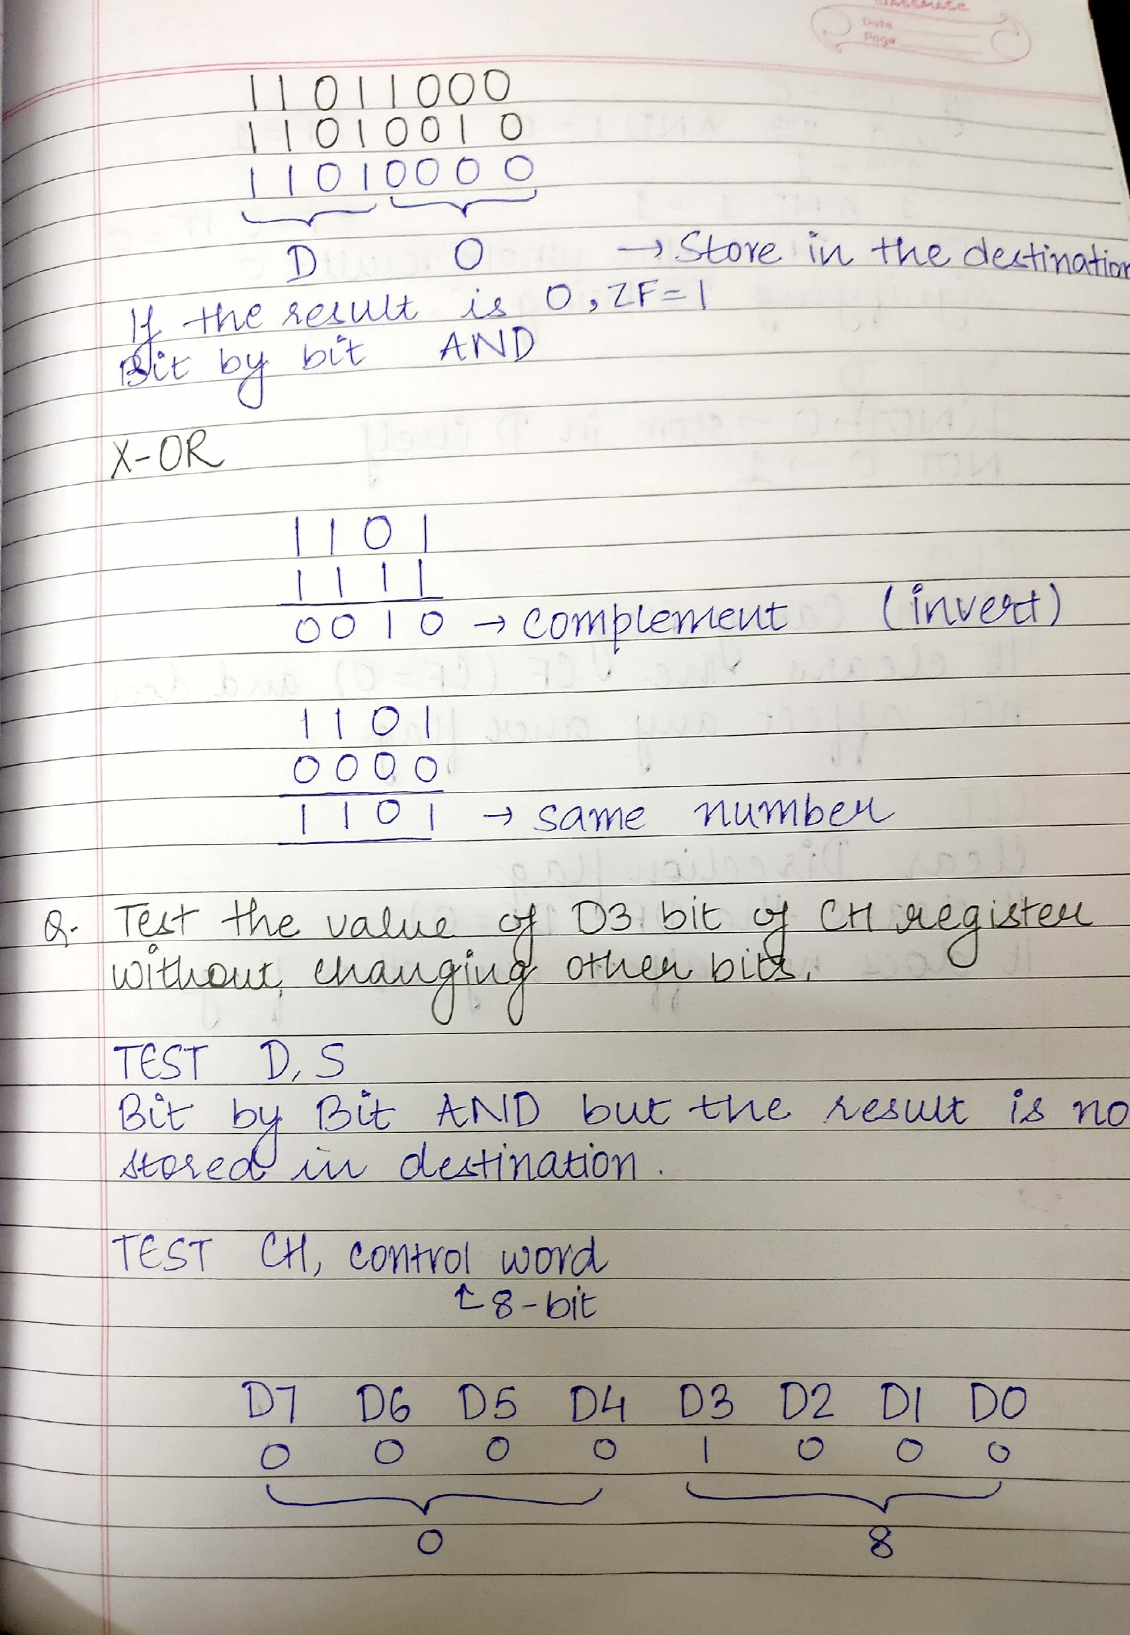 classmate
Date
Page
11011000
11010010
11010000
D 0 → Store in the destination
If the result is 0, ZF=1
Bit by bit AND
X-OR
1101
1111
0010 → complement (invert)
1101
0000
1101 → same number
Q. Test the value of D3 bit of CH register
without changing other bits.
TEST D, S
Bit by Bit AND but the result is no
stored in destination.
TEST CH, control word
↑ 8-bit
D7 D6 D5 D4 D3 D2 D1 D0
0 0 0 0 1 0 0 0
0 8